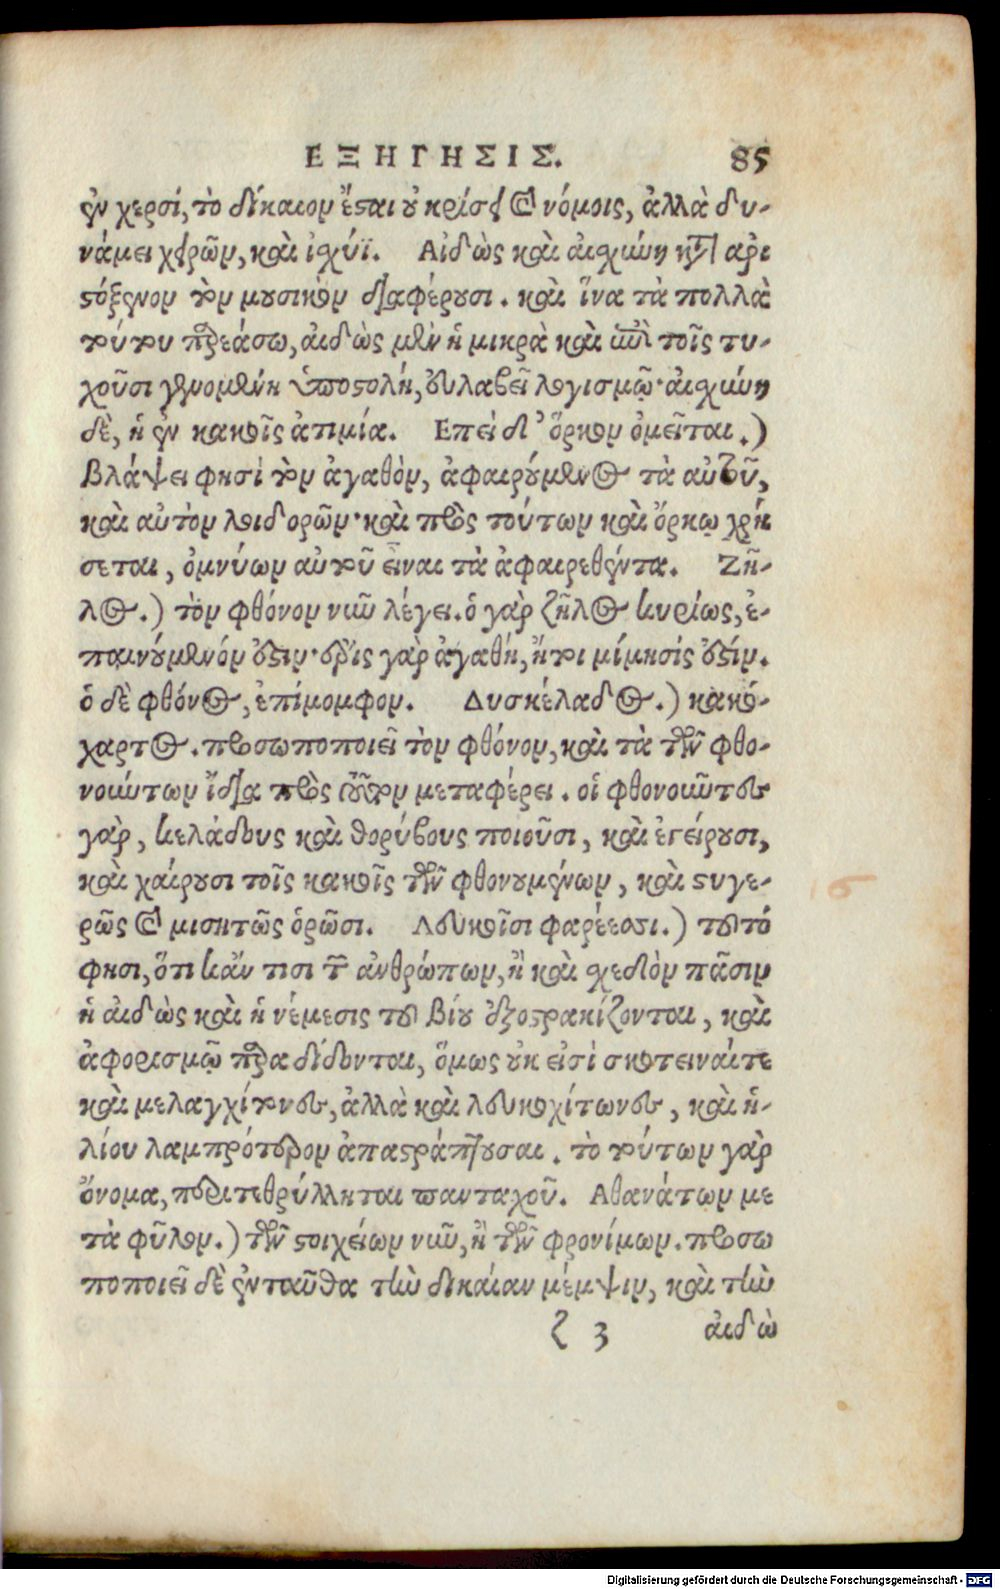 ΕΞΗΓΗΣΙΣ. 85
ἐν χερσί, τὸ δίκαιον ἔσται οὐ κρίσει καὶ νόμοις, ἀλλὰ δυ-
νάμει χειρῶν, καὶ ἰσχύϊ. Αἰδὼς καὶ αἰσχύνη κατ' ἀρι
στόξενον τὸν μουσικὸν διαφέρουσι. καὶ ἵνα τὰ πολλὰ
τούτου παρεάσω, αἰδὼς μὲν ἡ μικρὰ καὶ ἐπὶ τοῖς τυ-
χοῦσι γενομένη ὑποστολή, εὐλαβεῖ λογισμῷ· αἰσχύνη
δὲ, ἡ ἐν κακοῖς ἀτιμία. Επεὶ δι' ὅρκον ὀμεῖται.)
βλάψει φησὶ τὸν ἀγαθὸν, ἀφαιρούμενος τὰ αὐτοῦ,
καὶ αὐτὸν λοιδορῶν· καὶ πρὸς τούτων καὶ ὅρκῳ χρή
σεται, ὀμνύων αὐτοῦ εἶναι τὰ ἀφαιρεθέντα. Ζῆ-
λος.) τὸν φθόνον νῦν λέγει. ὁ γὰρ ζῆλος κυρίως, ἐ-
παινούμενόν ἐστιν· ἔρις γὰρ ἀγαθή, ἤτοι μίμησίς ἐστίν.
ὁ δὲ φθόνος, ἐπίμομφον. Δυσκέλαδος.) κακό-
χαρτος. προσωποποιεῖ τὸν φθόνον, καὶ τὰ τῶν φθο-
νούντων ἴδια πρὸς αὐτὸν μεταφέρει. οἱ φθονοῦντες
γὰρ, κελάδους καὶ θορύβους ποιοῦσι, καὶ ἐγείρουσι,
καὶ χαίρουσι τοῖς κακοῖς τῶν φθονουμένων, καὶ στυγε-
ρῶς καὶ μισητῶς ὁρῶσι. Λευκοῖσι φαρέεσσι.) τοῦτό
φησι, ὅτι κἄν τισι τῶν ἀνθρώπων, ἢ καὶ σχεδὸν πᾶσιν
ἡ αἰδὼς καὶ ἡ νέμεσις τοῦ βίου ἐξοστρακίζονται, καὶ
ἀφορισμῷ παραδίδονται, ὅμως οὐκ εἰσὶ σκοτειναίτε
καὶ μελαγχίτονες, ἀλλὰ καὶ λευκοχίτωνες, καὶ ἡ-
λίου λαμπρότερον ἀπαστράπτουσαι. τὸ τούτων γὰρ
ὄνομα, περιτεθρύλληται πανταχοῦ. Αθανάτων με
τὰ φῦλον.) τῶν στοιχείων νῦν, ἢ τῶν φρονίμων. προσω
ποποιεῖ δὲ ἐνταῦθα τὴν δικαίαν μέμψιν, καὶ τὴν
ζ 3 αἰδὼ
Digitalisierung gefördert durch die Deutsche Forschungsgemeinschaft - DFG